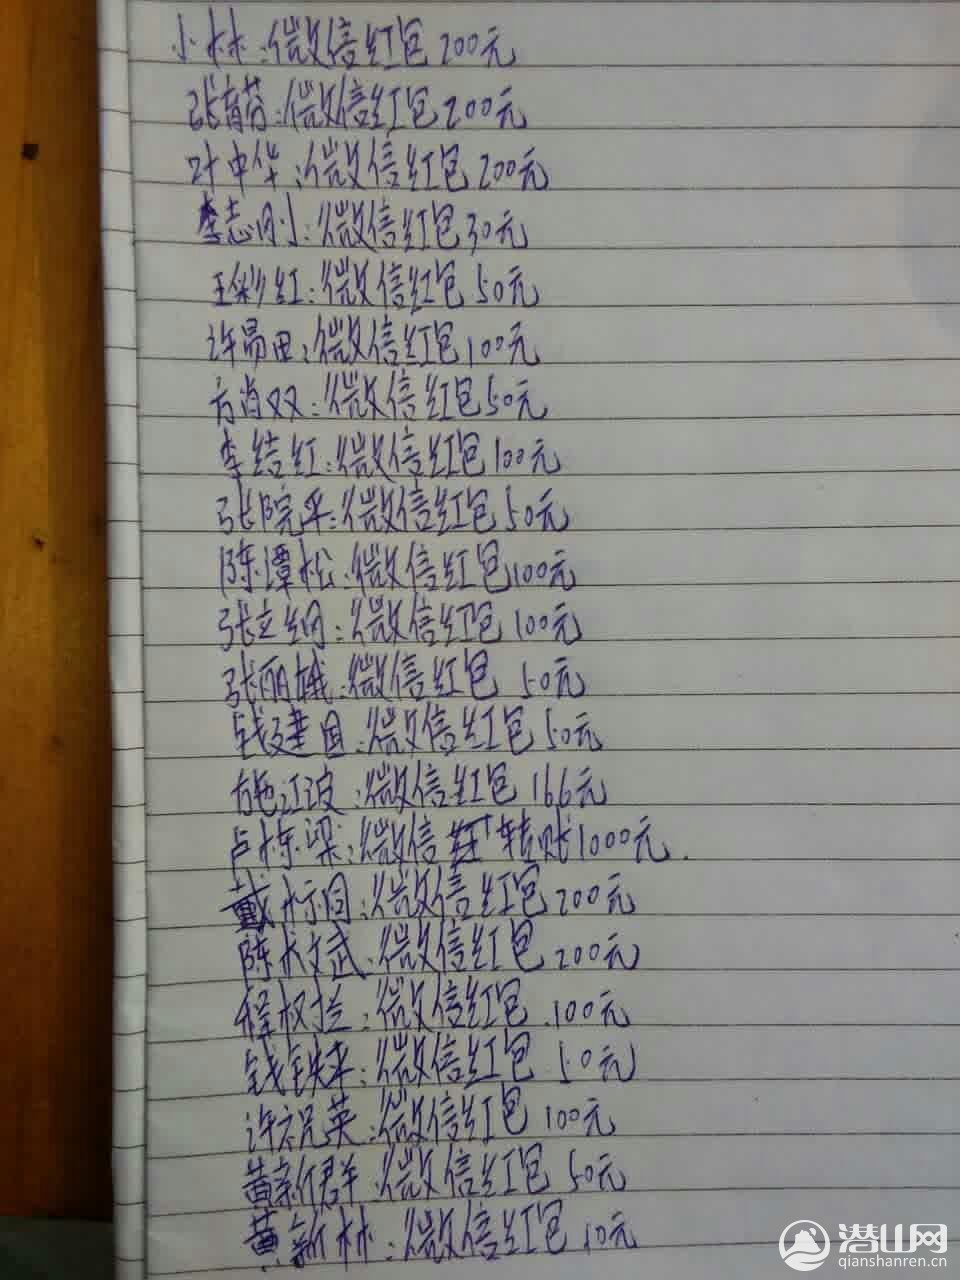 小林:微信红包200元
张育芬:微信红包200元
叶中华:微信红包200元
李志刚:微信红包30元
王彩红:微信红包50元
许昌田:微信红包100元
方肖双:微信红包50元
李结红:微信红包100元
张院平:微信红包50元
陈潭松:微信红包100元
张立纲:微信红包100元
张丽娥:微信红包 50元
钱建国:微信红包50元
施江波:微信红包 166元
卢栋梁:微信 转账1000元.
戴标同:微信红包200元
陈文武:微信红包200元
程权兰:微信红包.100元
钱铁来:微信红包 50元
许祝英:微信红包100元
黄新群:微信红包50元
黄新林:微信红包 10元
潜山网
qianshanren.cn